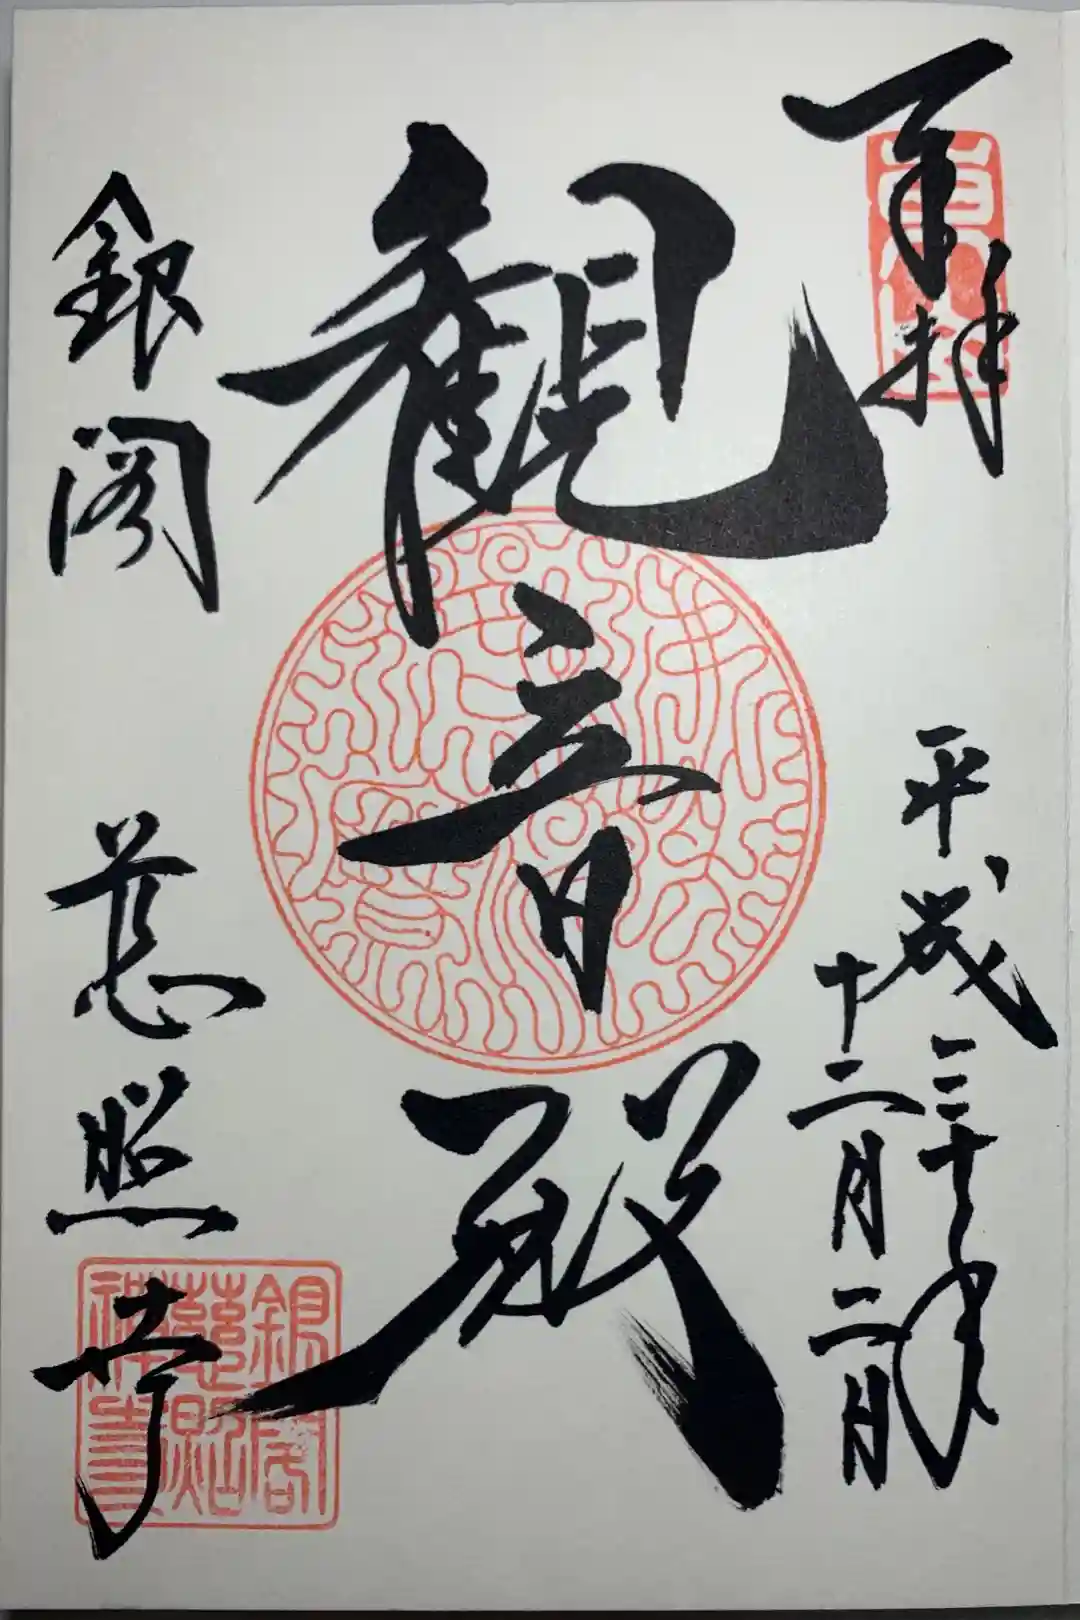 奉拝
平成三十年
十二月二日
観音殿
銀閣
慈照寺
銀閣
慈照
禅寺